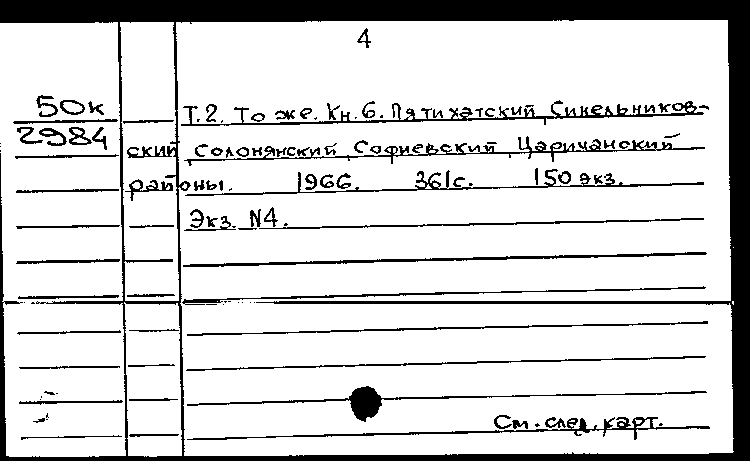 4
50к Т.2. То же. Кн.6. Пятихатский, Синельников-
2984 ский, Солонянский, Софиевский, Царичанский
районы. 1966. 361с. 150 экз.
Экз. N4.
См. след. карт.